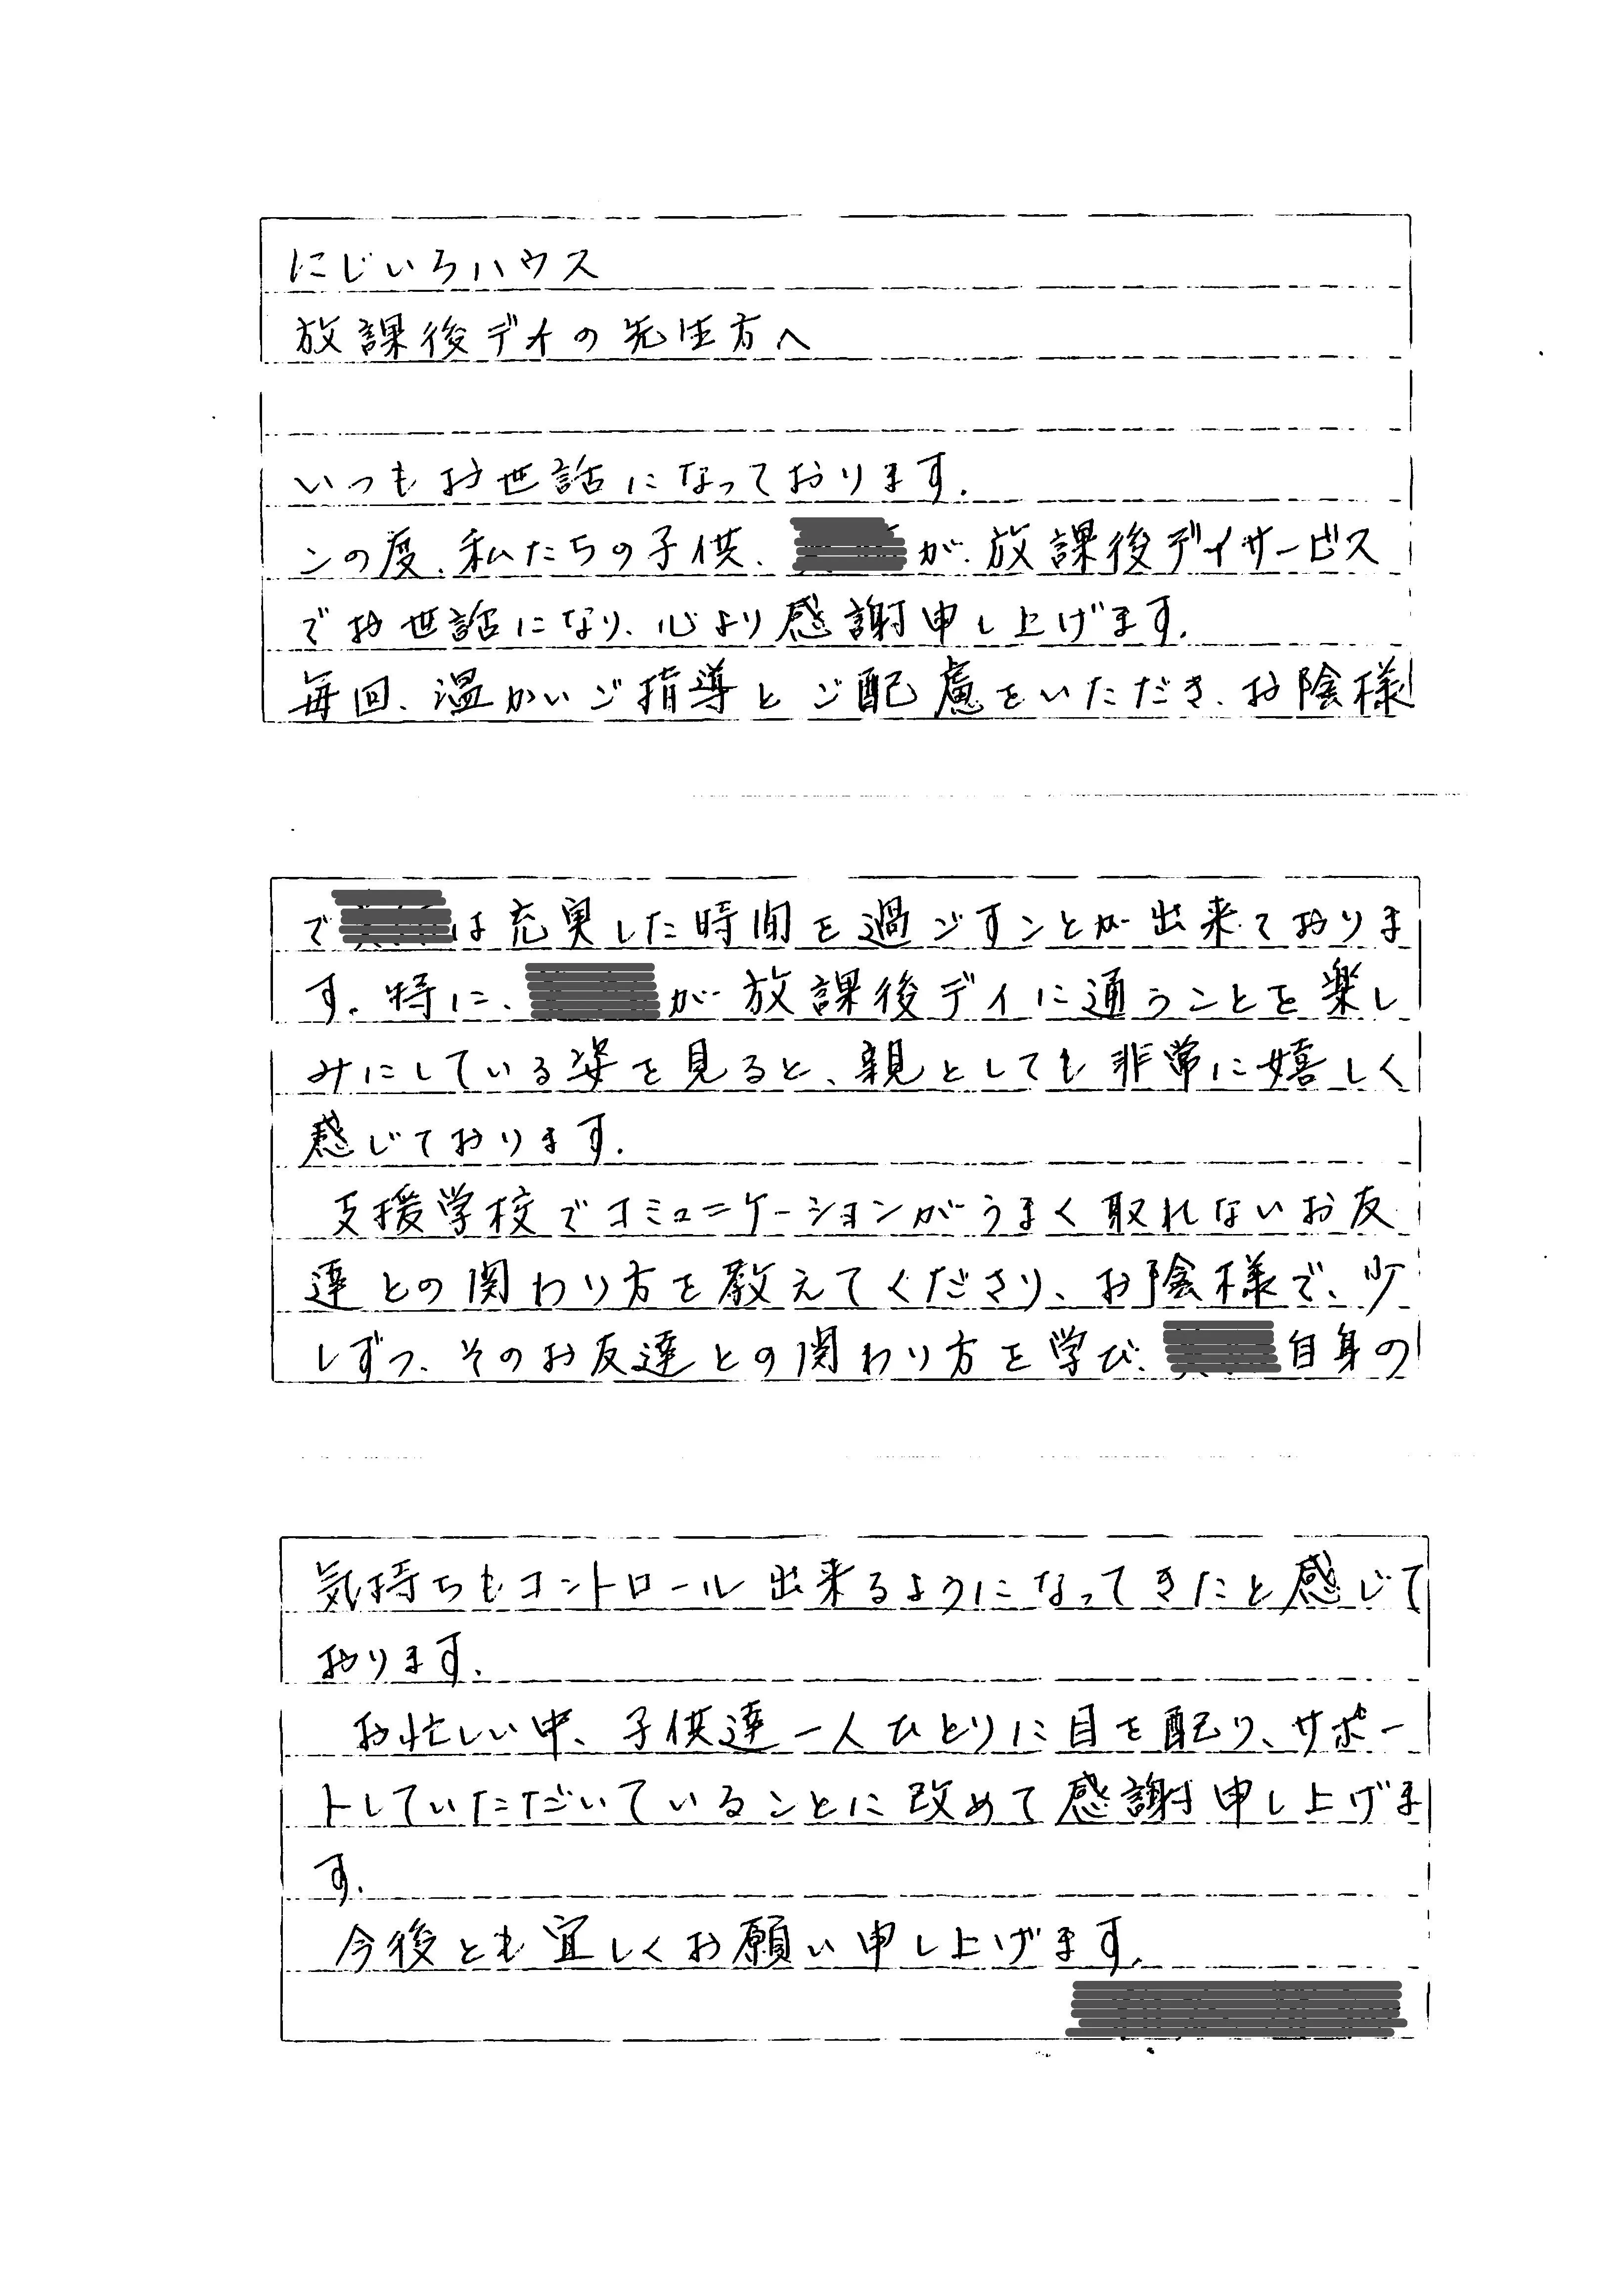 にじいろハウス
放課後デイの先生方へ
いつもお世話になっております.
この度、私たちの子供、が、放課後デイサービス
でお世話になり、心より感謝申し上げます.
毎回、温かいご指導とご配慮をいただき、お陰様
では充実した時間を過ごすことが出来ておりま
す.特に、が放課後デイに通うことを楽し
みにしている姿を見ると、親としても非常に嬉しく
感じております.
支援学校でコミュニケーションがうまく取れないお友
達との関わり方を教えてくださり、お陰様で、少
しずつ、そのお友達との関わり方を学び、自身の
気持ちもコントロール出来るようになってきたと感じて
おります.
お忙しい中、子供達一人ひとりに目を配り、サポー
トしていただいていることに改めて感謝申し上げま
す.
今後とも宜しくお願い申し上げます.